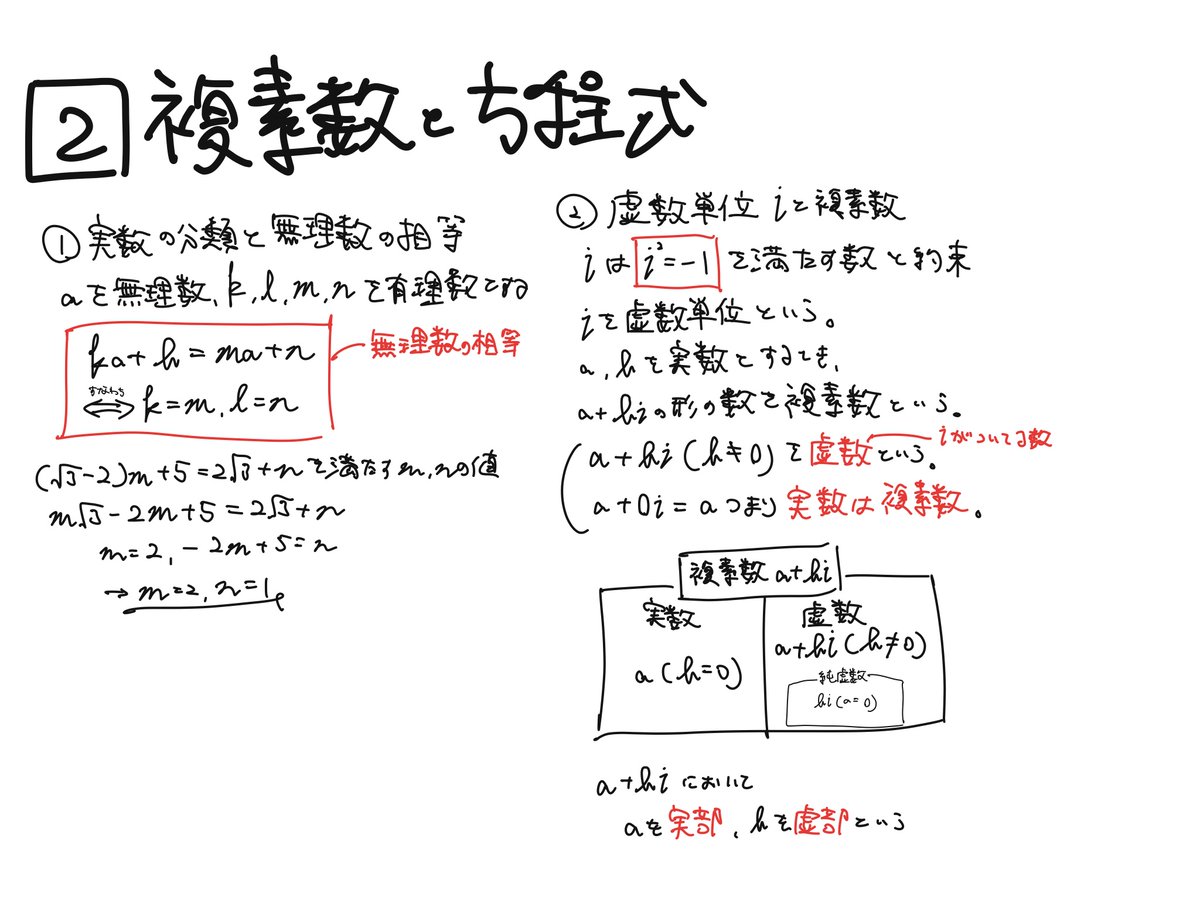 2 複素数と方程式
① 実数の分類と無理数の相等
aを無理数、k, l, m, nを有理数とする
ka+h=ma+n
無理数の相等
すなわち
⟺ k=m, l=n
(√3-2)m+5=2√3+nを満たすm,nの値
m√3-2m+5=2√3+n
m=2, -2m+5=n
→ m=2, n=1
② 虚数単位iと複素数
iは i²=-1 を満たす数と約束
iを虚数単位という。
a, bを実数とするとき、
a+biの形の数を複素数という。
a+bi (b≠0)を虚数という。
iがついてる数
a+0i=aつまり実数は複素数。
複素数 a+bi
実数
a (b=0)
虚数
a+bi (b≠0)
純虚数
bi (a=0)
a+biにおいて
aを実部、bを虚部という